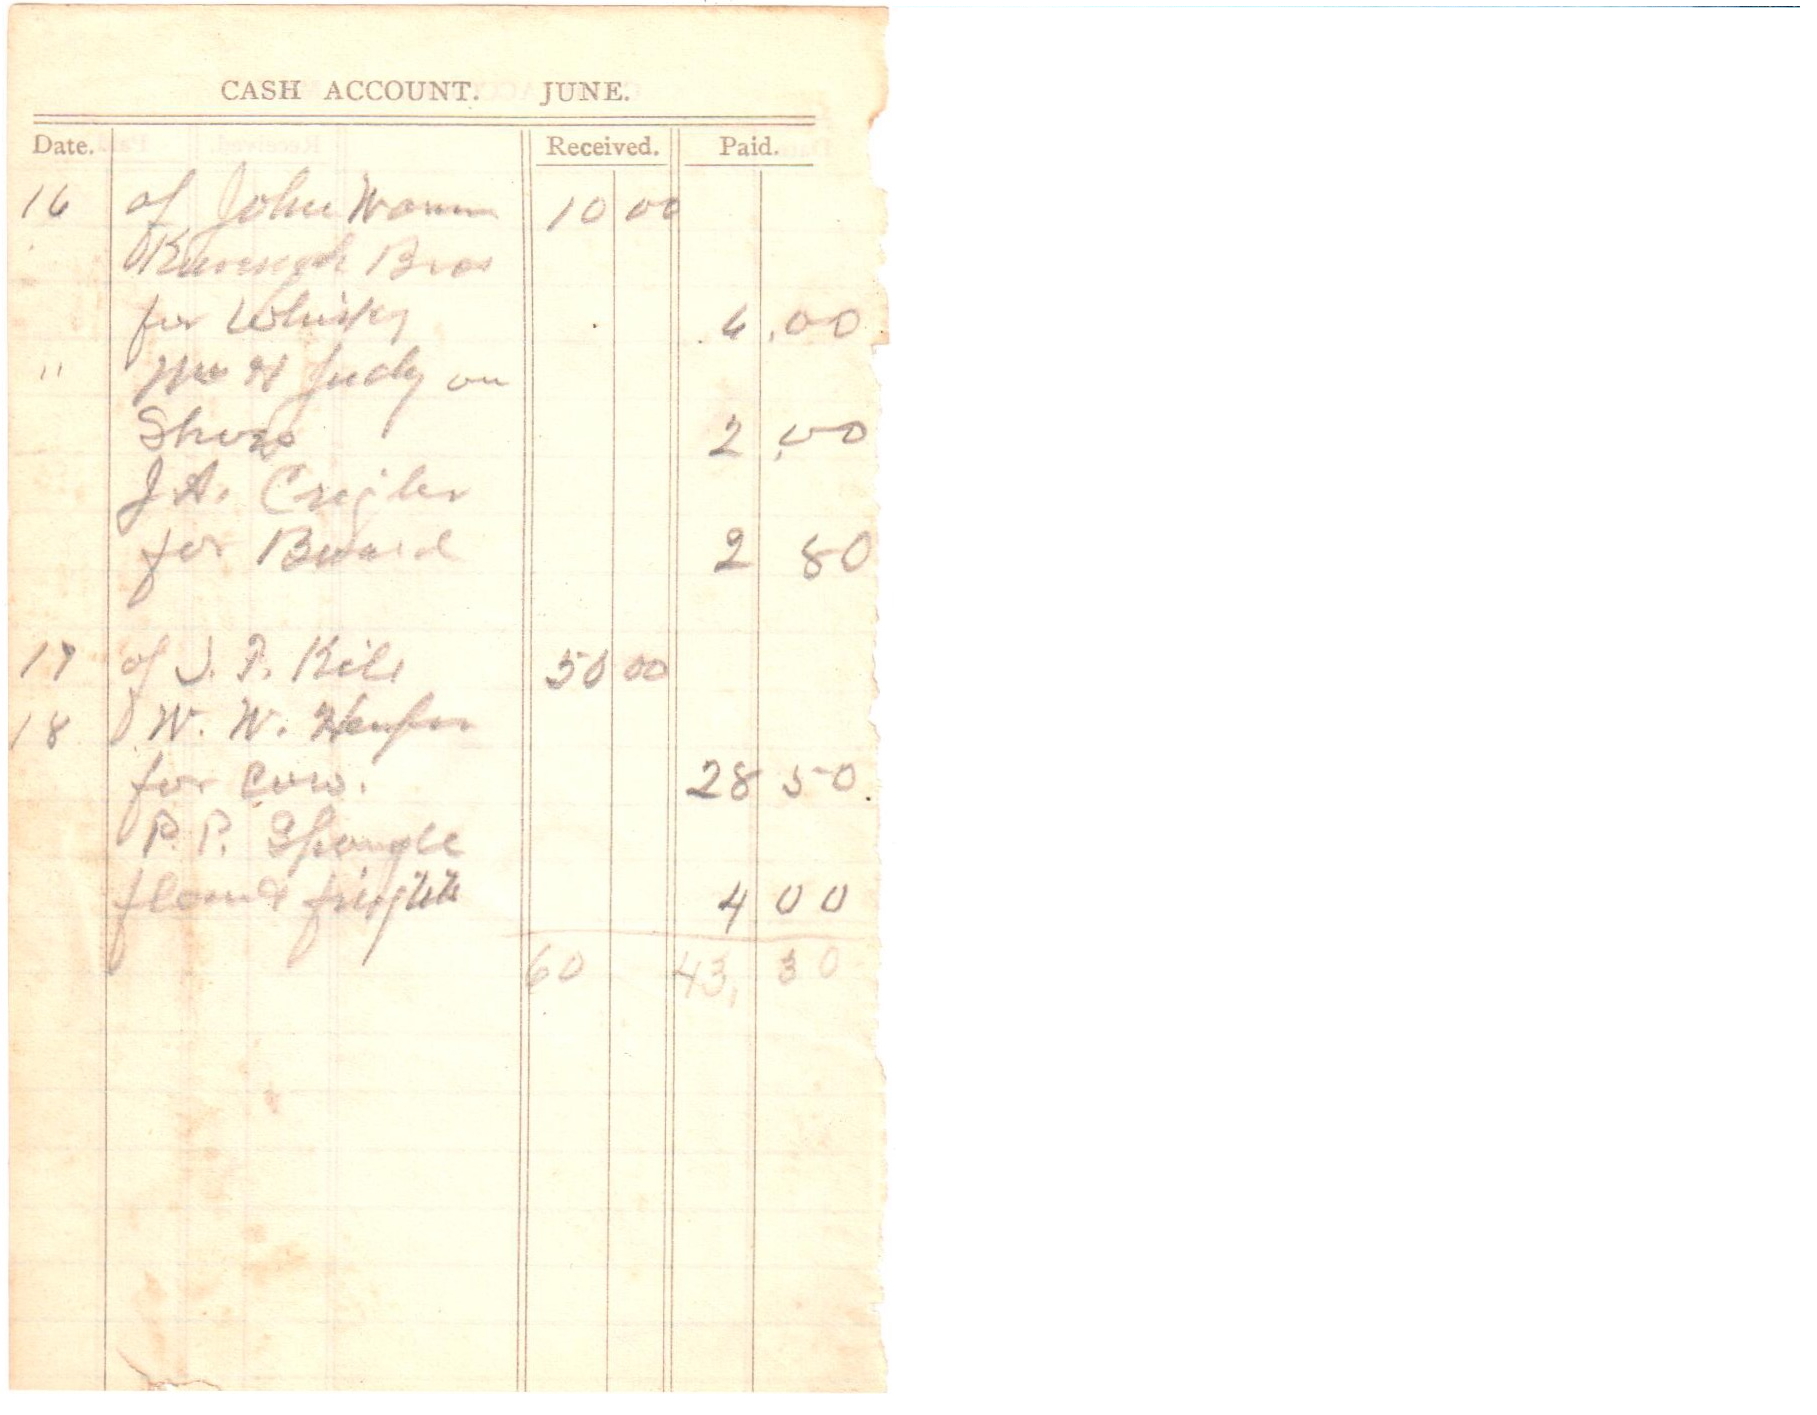 CASH ACCOUNT. JUNE.
Date. Received. Paid.
16 of John 10 00
Bros
for Whisky 6.00
" Wm H Judy on
Shoes 2.00
J. A. Crigler
for Board 2 80
17 of J. F. Kile 50 00
18 W. W.
for Cow. 28 50
P. P. Spangle
4 00
60 43, 30